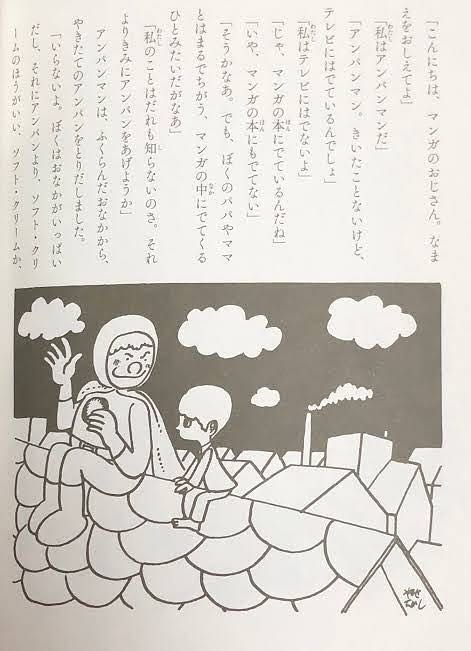 「こんにちは、マンガのおじさん。なま
えをおしえてよ」
「私はアンパンマンだ」
「アンパンマン。きいたことないけど、
テレビにはでているんでしょ」
「私はテレビにはでないよ」
「じゃ、マンガの本にでているんだね」
「いや、マンガの本にもでてない」
「そうかなあ。でも、ぼくのパパやママ
とはまるでちがう、マンガの中にでてくる
ひとみたいだがなあ」
「私のことはだれも知らないのさ。それ
よりきみにアンパンをあげようか」
アンパンマンは、ふくらんだおなかから、
やきたてのアンパンをとりだしました。
「いらないよ。ぼくはおなかがいっぱい
だし、それにアンパンより、ソフト・クリ
ームのほうがいい、ソフト・クリームか、
やなせ
たかし